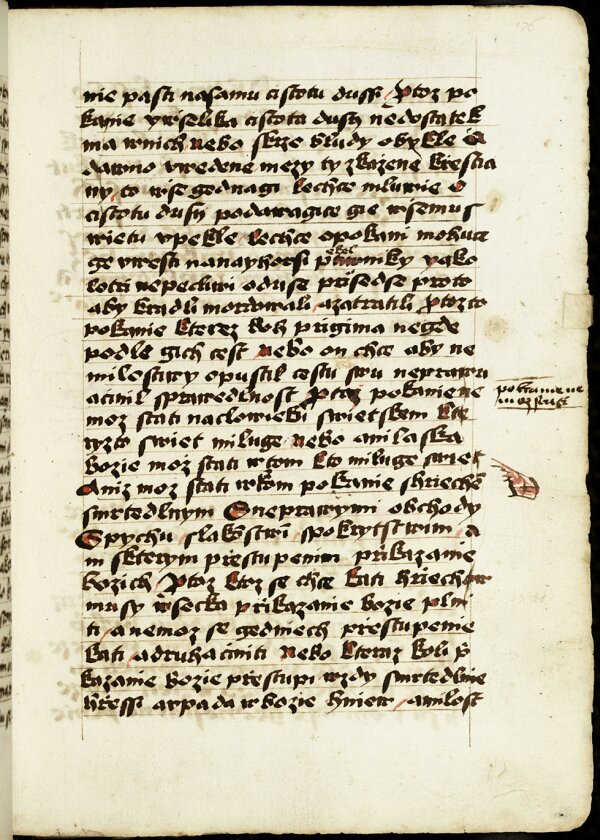 nie pasti nasamu cistotu dussi ptoz po
kanie vwselika cistota dusy nedostatek
ma wnich nebo skrze bludy obykle a
dawno vwedene mezy ty zkazene krestia
ny to wse gednagi lechce mluwie o
cistotu dusy podawagice gie wsemu s
wietu vpekle lechce opokani mohuce
ge vwesti nanayhorsi yako
lotri nepeclwi oduse prisedse proto
aby kradli mordowali azatratili ptozto
pokanie kterez boh prigima negde
podle gich cest nebo on chce aby ne
milostiwy opustil cestu swu neprawu
acinil sprawedlnost ptoz pokanie ne
moz stati naclowieku swietskem kte
ryzto swiet miluge nebo ani laska
bozie moz stati wtom kto miluge swiet
Aniz moz stati wkom pokanie shriechem
smrtedlnym Sneprawymi obchody
Spychu slakomstwim spokrytstwim a
in skterym prestupenim prikazanie
bozich ptoz ktoz se chce kati hriechow
musy wsecka prikazanie bozie plni
ti anemoz se gedniech prestupenie
kati adruha ciniti nebo kteraz koli p
kazanie bozie prestupi wzdy smrtedlnie
hressi avpada wbozie hniew amilost
pokanie ne
moz stati